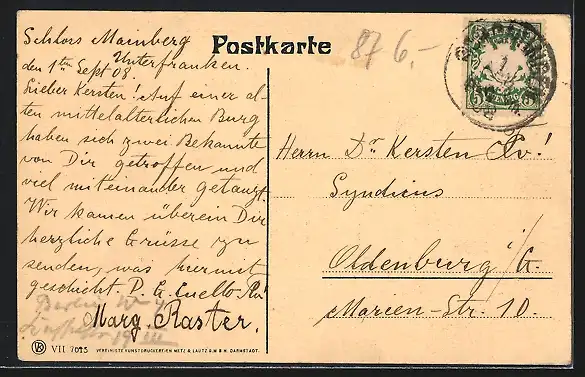 Schloss Mainberg
Unterfranken.
den 1ten Sept 08.
Lieber Kersten! Auf einer al-
ten mittelalterlichen Burg
haben sich zwei Bekannte
von Dir getroffen und
viel miteinander getanzt.
Wir kamen überein Dir
herzliche Grüsse zu
senden, was hiermit
geschieht D. G. Cuello
Marg. Raster.
Berlin W
VII 7025 VEREINIGTE KUNSTDRUCKEREIEN METZ & LAUTZ G.M.B.H. DARMSTADT.
Postkarte
87 6,-
5 PFENNIG 5
Herrn Dr Kersten
Syndicus
Oldenburg i/G.
Marien-Str. 10.